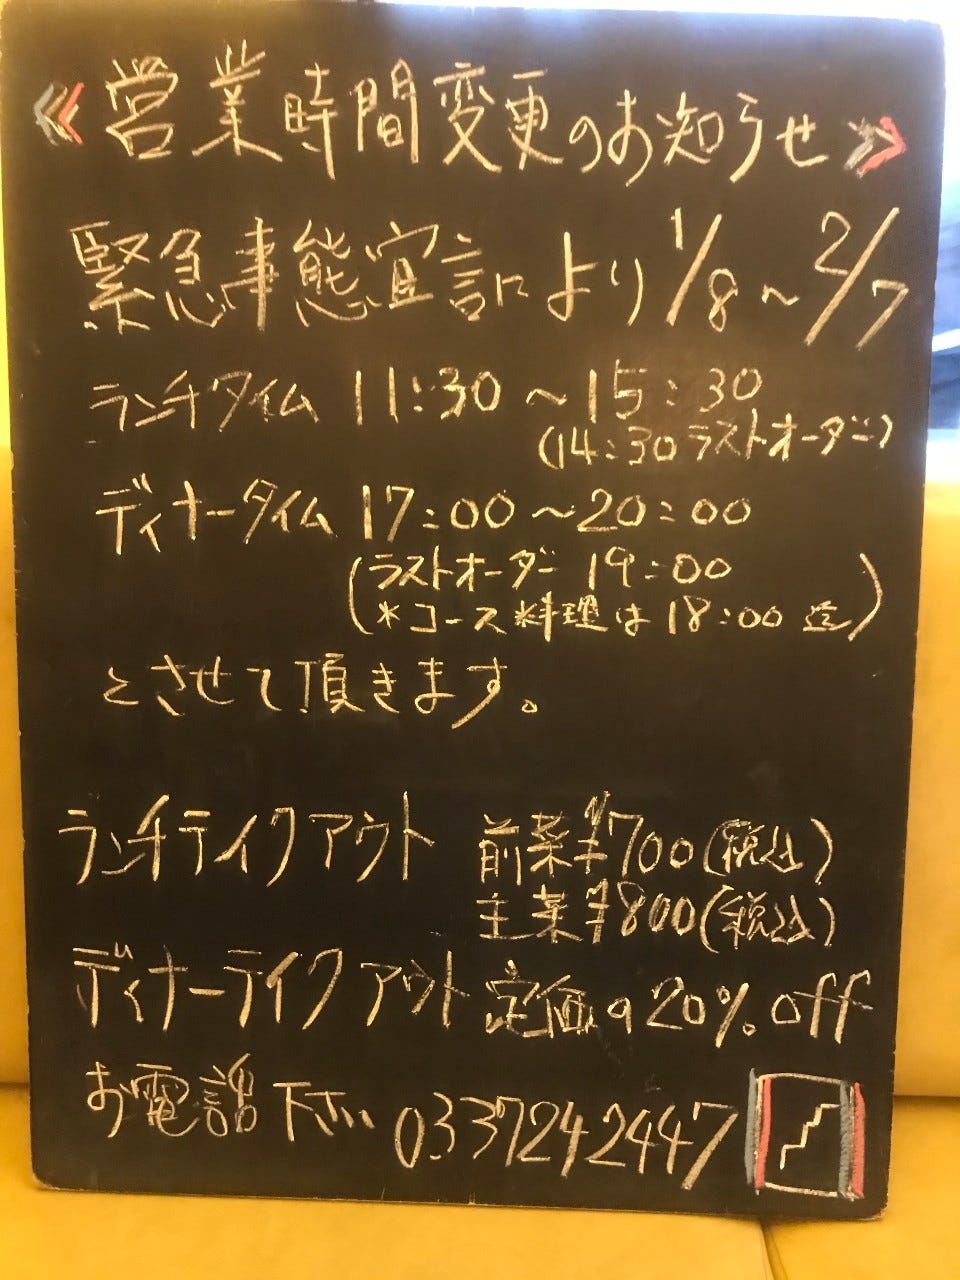 ≪営業時間変更のお知らせ≫
緊急事態宣言により 1/8～2/7
ランチタイム 11:30～15:30
(14:30ラストオーダー)
ディナータイム 17:00～20:00
(ラストオーダー 19:00
*コース料理は18:00迄)
とさせて頂きます。
ランチテイクアウト 前菜¥700(税込)
主菜¥800(税込)
ディナーテイクアウト 定価の20%off
お電話下さい 0337242447